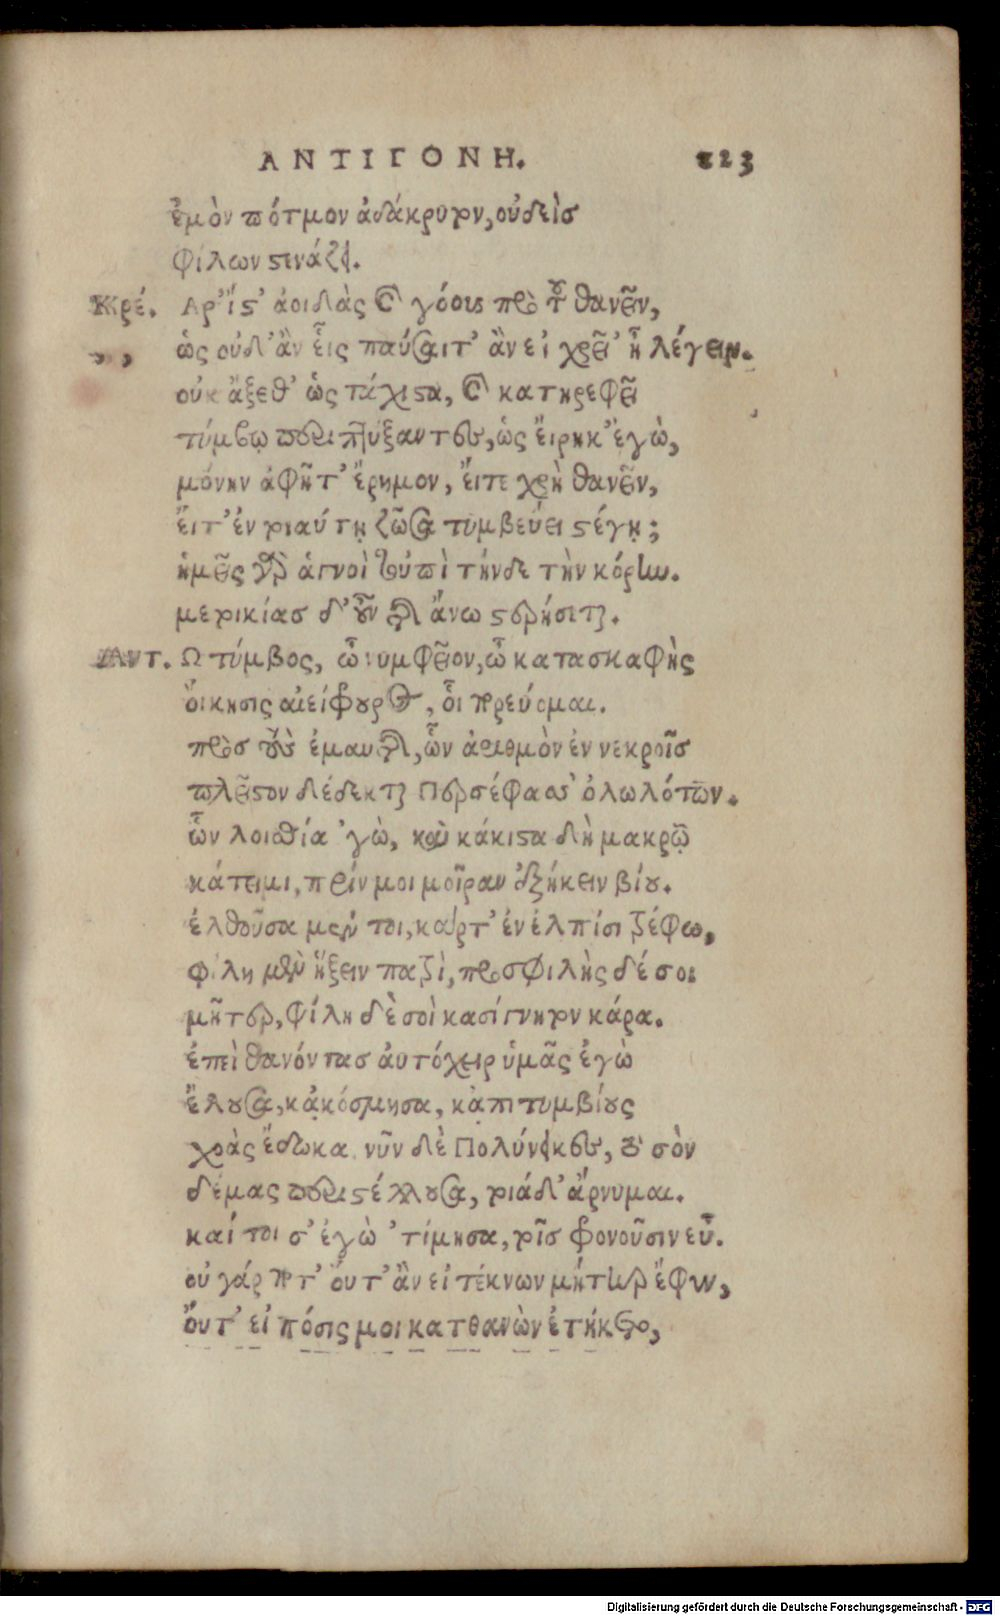 ΑΝΤΙΓΟΝΗ. 223
ἐμὸν πότμον ἀδάκρυτον, οὐδεὶς
φίλων στενάζει.
Κρέ. Αρ' ἴστ' ἀοιδὰς καὶ γόους πρὸ τοῦ θανεῖν,
,, ὡς οὐδ' ἂν εἷς παύσαιτ' ἂν εἰ χρεῖ' ἦ λέγειν.
οὐκ ἄξεθ' ὡς τάχιστα, καὶ κατηρεφεῖ
τύμβῳ περιπτύξαντες, ὡς εἴρηκ' ἐγὼ,
μόνην ἀφῆτ' ἔρημον, εἴτε χρὴ θανεῖν,
εἴτ' ἐν τοιαύτῃ ζῶσα τυμβεύει στέγῃ;
ἡμεῖς γὰρ ἁγνοὶ τοὐπὶ τήνδε τὴν κόρην.
μετοικίας δ' οὖν τῆς ἄνω στερήσεται.
Αντ. Ω τύμβος, ὦ νυμφεῖον, ὦ κατασκαφὴς
οἴκησις αἰείφρουρος, οἷ πορεύομαι.
πρὸς τοὺς ἐμαυτῆς, ὧν ἀριθμὸν ἐν νεκροῖς
πλεῖστον δέδεκται Περσέφασσ' ὀλωλότων.
ὧν λοισθία 'γὼ, καὶ κάκιστα δὴ μακρῷ
κάτειμι, πρίν μοι μοῖραν ἐξήκειν βίου.
ἐλθοῦσα μέν τοι, κάρτ' ἐν ἐλπίσι τρέφω,
φίλη μὲν ἥξειν πατρὶ, προσφιλὴς δέ σοι
μῆτερ, φίλη δὲ σοὶ κασίγνητον κάρα.
ἐπεὶ θανόντας αὐτόχειρ ὑμᾶς ἐγὼ
ἔλουσα, κᾀκόσμησα, κᾀπιτυμβίους
χοὰς ἔδωκα. νῦν δὲ Πολύνεικες, τὸ σὸν
δέμας περιστέλλουσα, τοιάδ' ἄρνυμαι.
καί τοι σ' ἐγὼ 'τίμησα, τοῖς φρονοῦσιν εὖ.
οὐ γάρ ποτ' οὔτ' ἂν εἰ τέκνων μήτηρ ἔφυν,
οὔτ' εἰ πόσις μοι κατθανὼν ἐτήκετο,
Digitalisierung gefördert durch die Deutsche Forschungsgemeinschaft - DFG